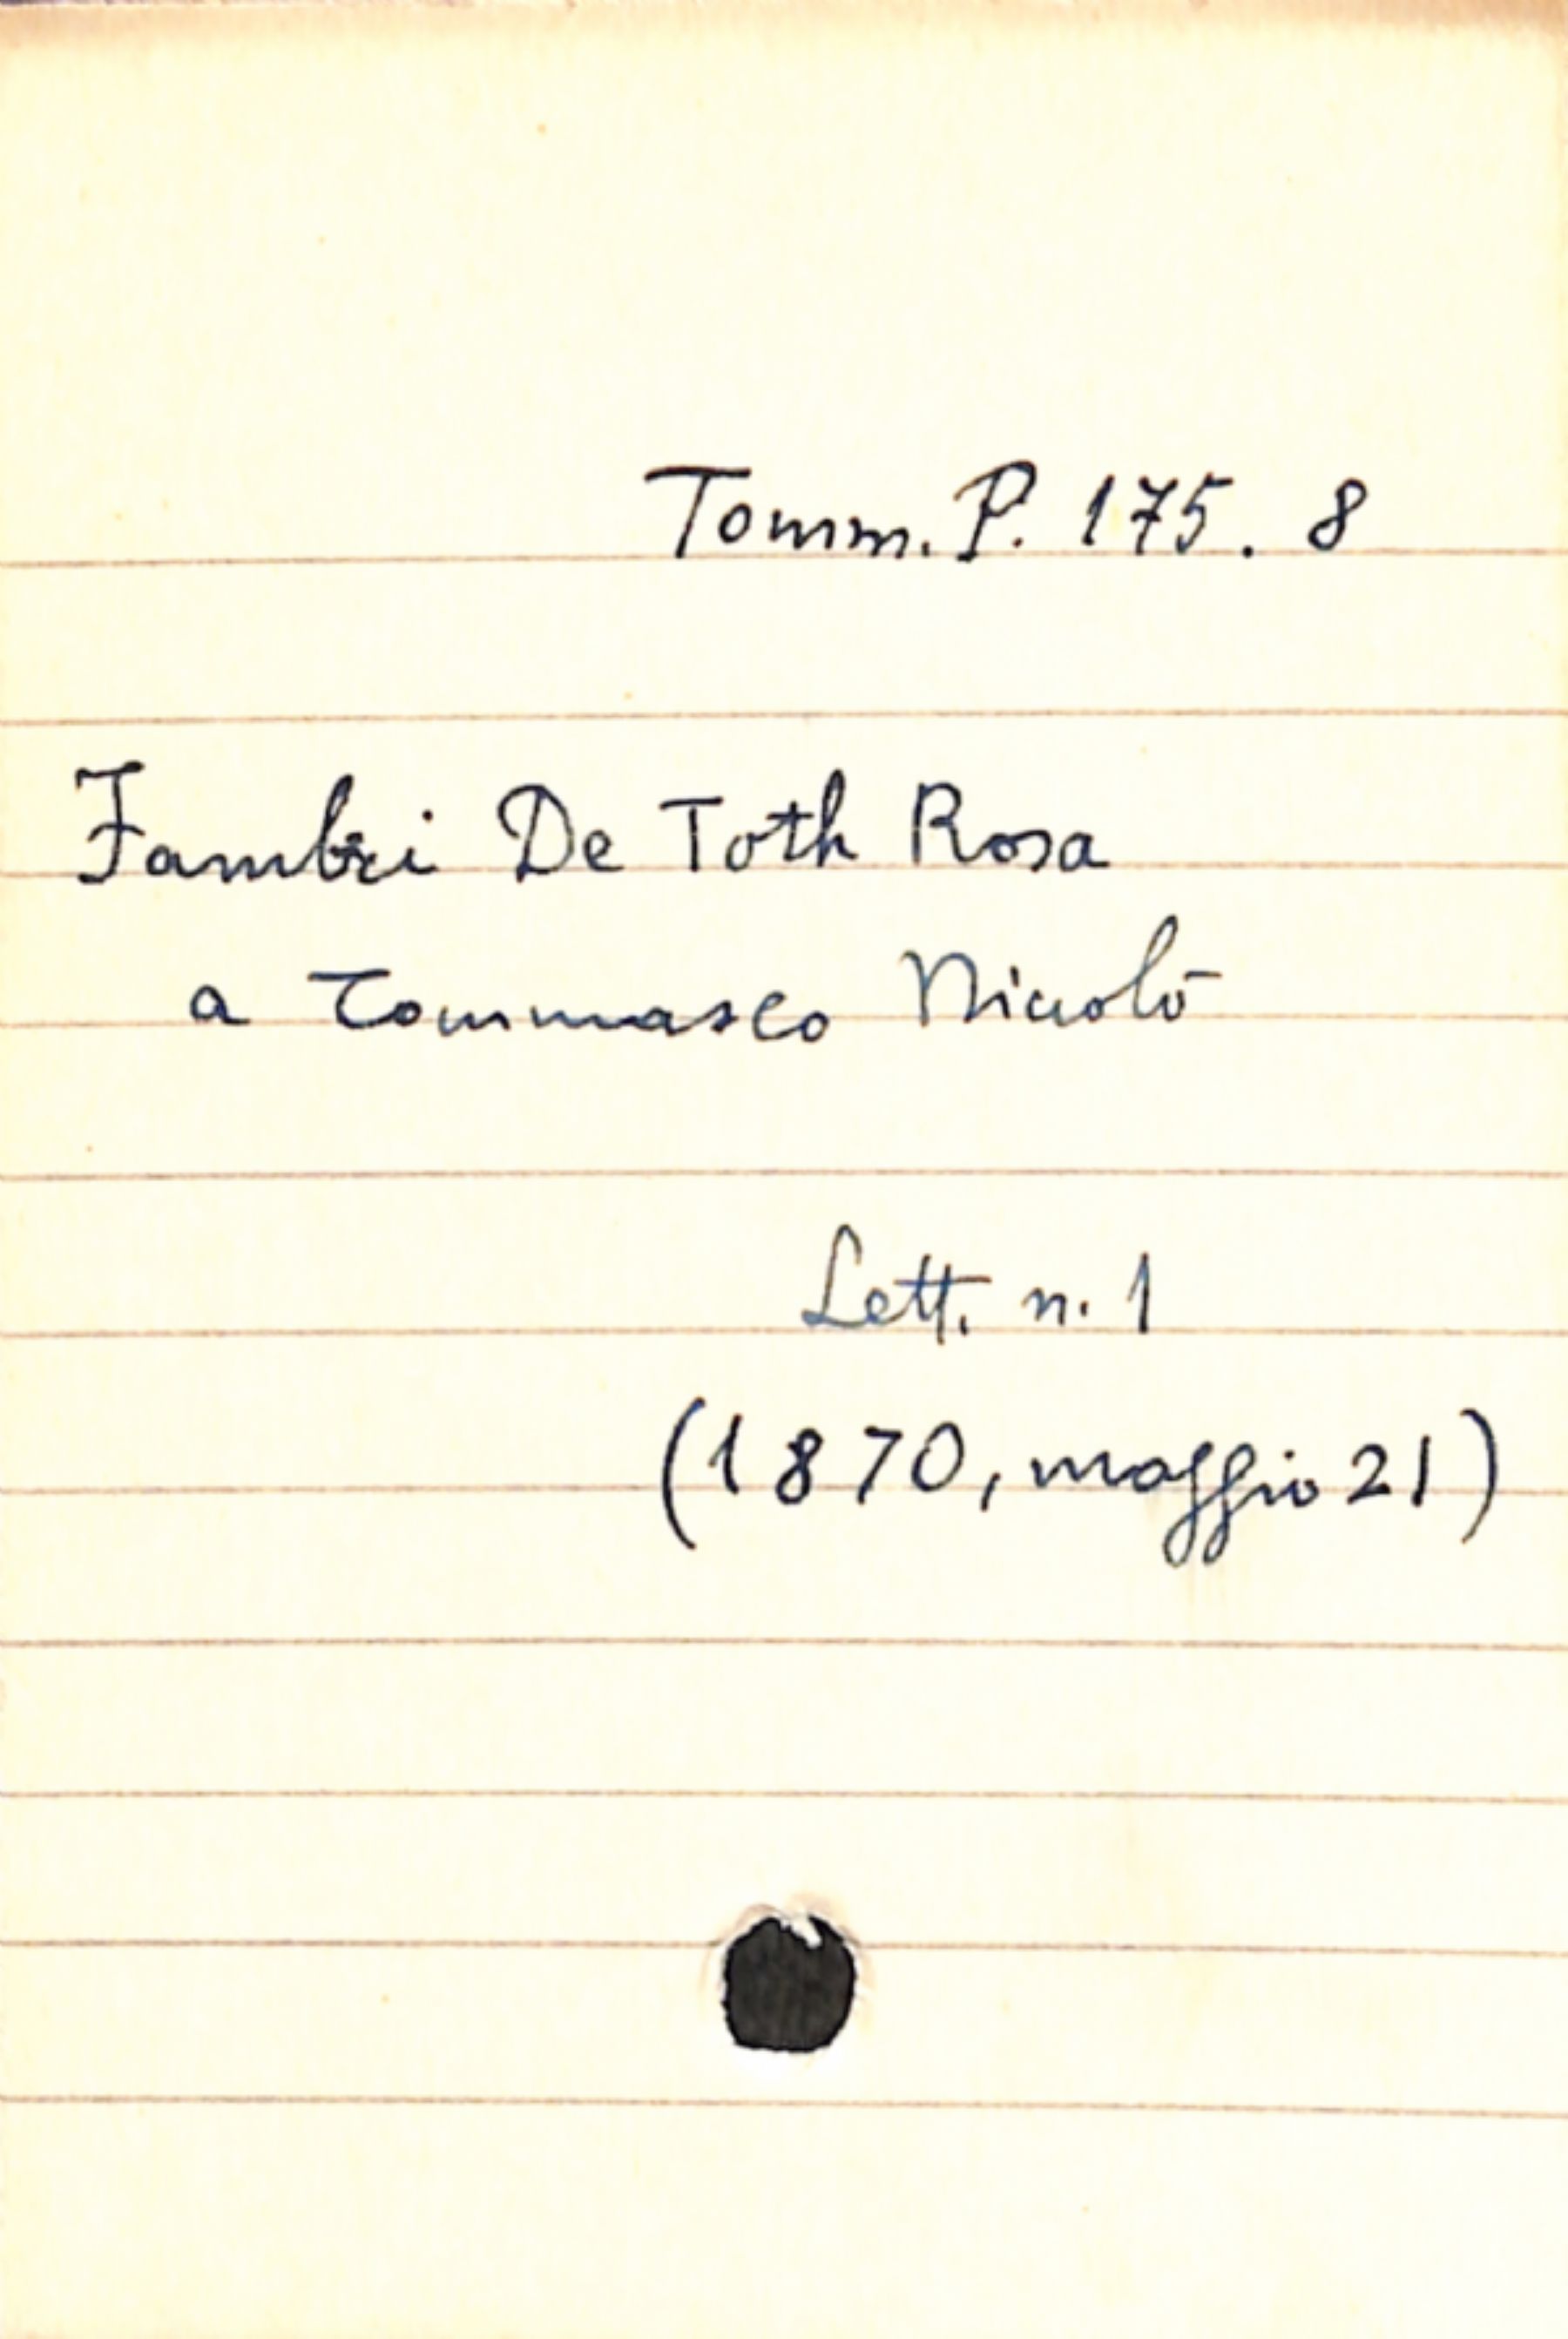 Tomm. P. 175. 8
Fambri De Toth Rosa
a Tommaseo Niccolò
Lett. n. 1
(1870, maggio 21)